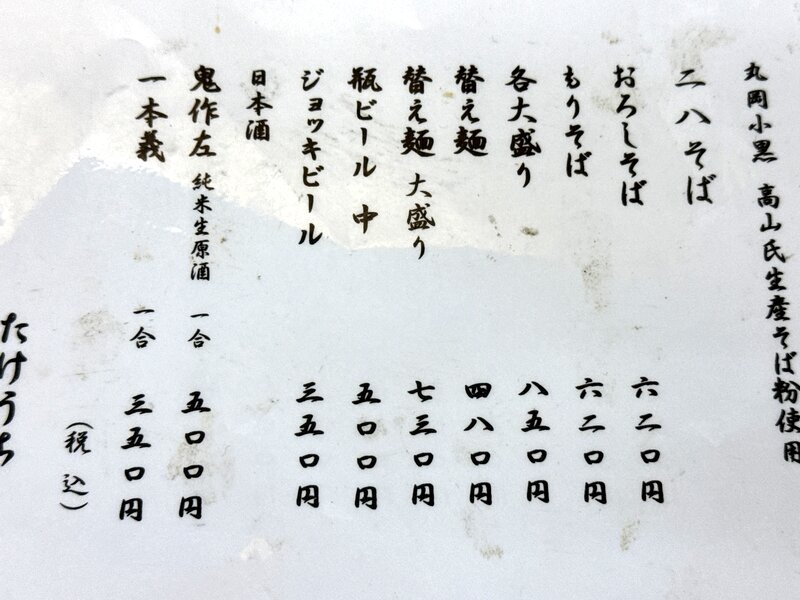 丸岡小黒 高山氏生産そば粉使用
二八そば
おろしそば 六二〇円
もりそば 六二〇円
各大盛り 八五〇円
替え麺 四八〇円
替え麺 大盛り 七三〇円
瓶ビール 中 五〇〇円
ジョッキビール 三五〇円
日本酒
鬼作左 純米生原酒 一合 五〇〇円
一本義 一合 三五〇円
(税込)
たけうち